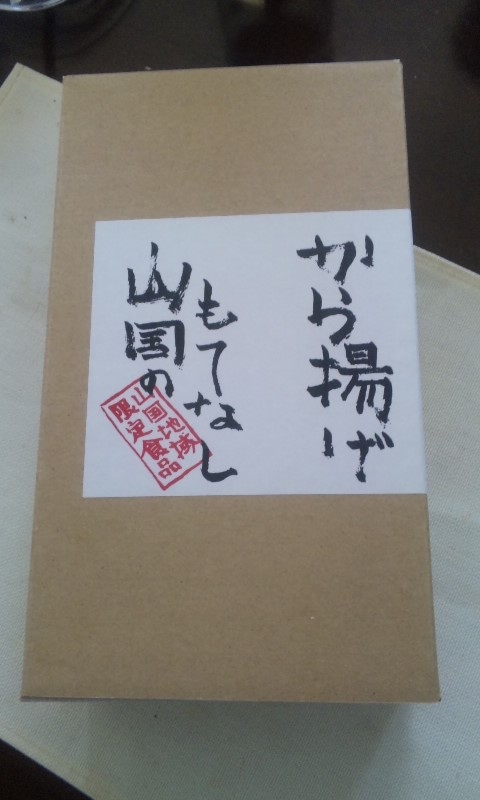 から揚げ
山国の
もてなし
山国地域
限定食品